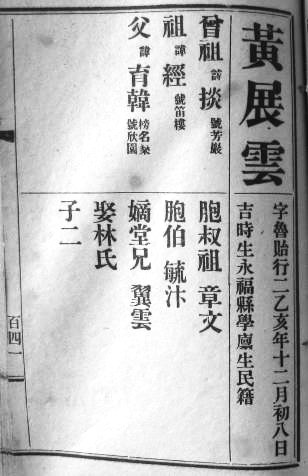 黃展雲
字魯貽行二乙亥年十二月初八日
吉時生永福縣學廩生民籍
曾祖 諱 掞 號芳巖
祖 諱 經 號笛樓
父 諱 育韓 榜名
號欣園
胞叔祖 章文
胞伯 毓汴
嫡堂兄 翼雲
娶林氏
子二
百四一